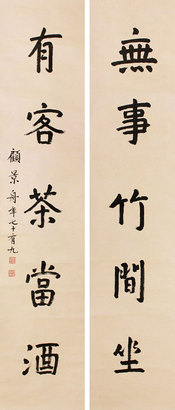 無事竹間坐
有客茶當酒
顧景舟年七十有九